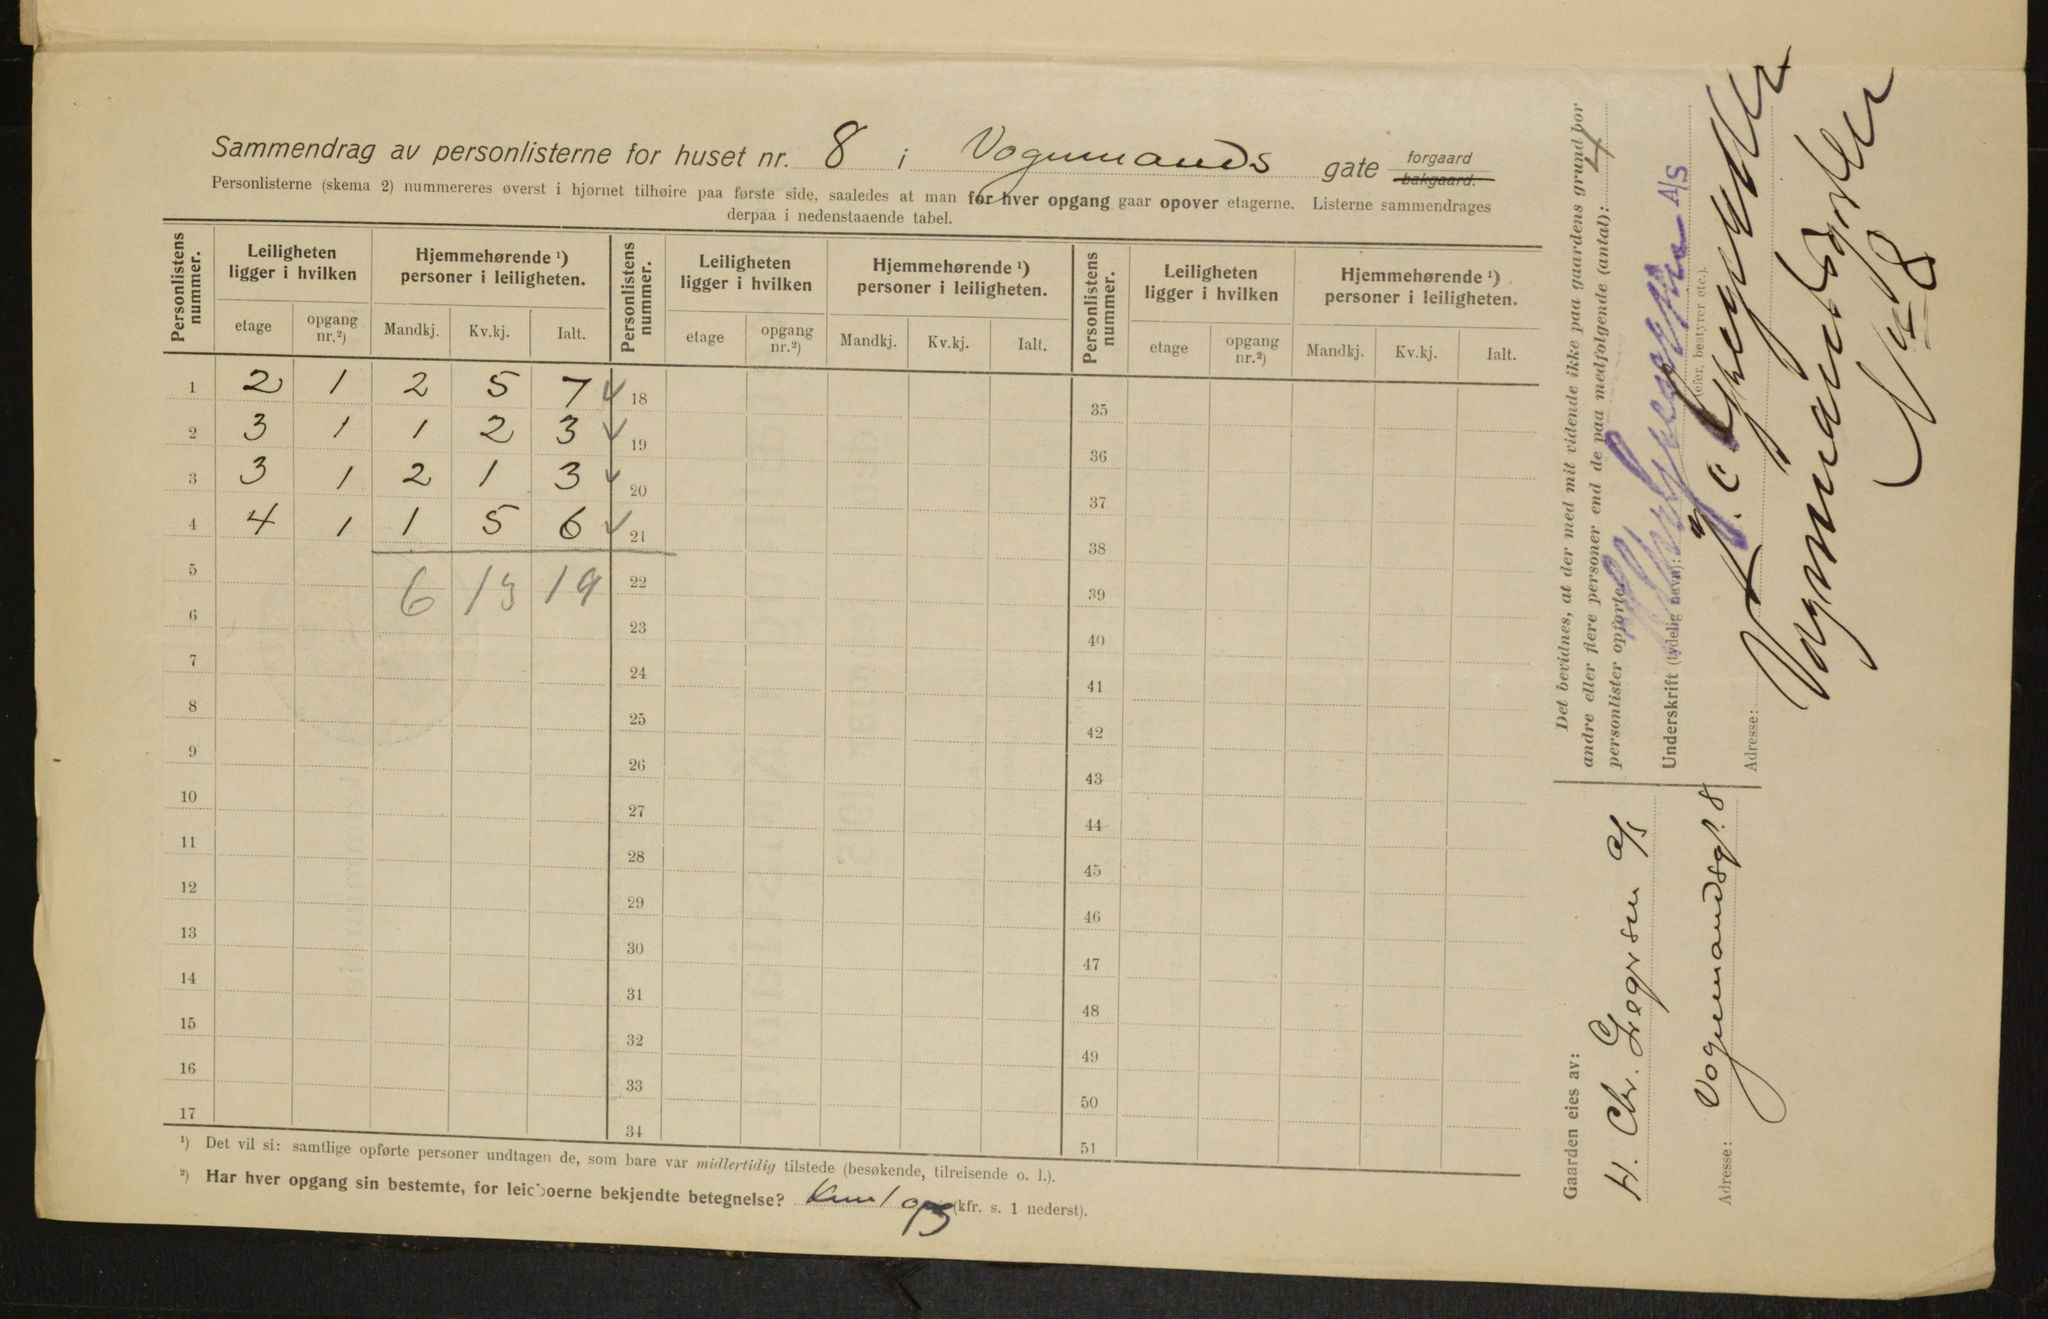 Sammendrag av personlisterne for huset nr. 8 i Vognmands gate forgaard bakgaard.
Personlisterne (skema 2) nummereres øverst i hjørnet tilhøire paa første side, saaledes at man for hver opgang gaar opover etagerne. Listerne sammendrages
derpaa i nedenstaaende tabel.
Personlistens nummer. Leiligheten ligger i hvilken Hjemmehørende ¹) personer i leiligheten. Personlistens nummer. Leiligheten ligger i hvilken Hjemmehørende ¹) personer i leiligheten. Personlistens nummer. Leiligheten ligger i hvilken Hjemmehørende ¹) personer i leiligheten.
etage opgang nr.²) Mandkj. Kv.kj. Ialt. etage opgang nr.²) Mandkj. Kv.kj. Ialt. etage opgang nr.²) Mandkj. Kv.kj. Ialt.
1 2 1 2 5 7 18 35
2 3 1 1 2 3 19 36
3 3 1 2 1 3 20 37
4 4 1 1 5 6 21 38
5 6 13 19 22 39
6 23 40
7 24 41
8 25 42
9 26 43
10 27 44
11 28 45
12 29 46
13 30 47
14 31 48
15 32 49
16 33 50
17 34 51
¹) Det vil si: samtlige opførte personer undtagen de, som bare var midlertidig tilstede (besøkende, tilreisende o. l.).
²) Har hver opgang sin bestemte, for leieboerne bekjendte betegnelse? Kun 1 opg (kfr. s. 1 nederst).
Det bevidnes, at der med mit vidende ikke paa gaardens grund bor
andre eller flere personer end de paa medfølgende (antal): 4
personlister opførte.
A/S
Underskrift (tydelig navn):
(eier, bestyrer etc.).
Adresse: Vognmandsgaten
No 8
Gaarden eies av:
H. Chr. Gregersen A/S
Adresse: Vognmandsgt. 8